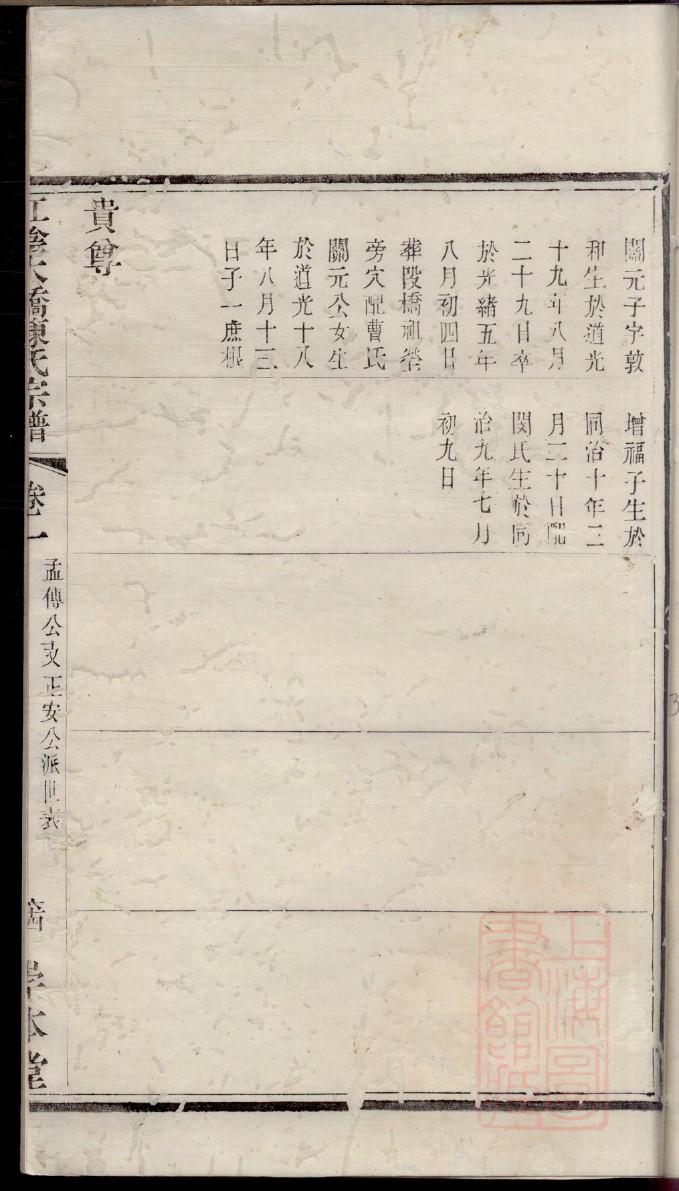 關元子字敦
和生於道光
十九年八月
二十九日卒
於光緒五年
八月初四日
葬段橋祖塋
旁穴配曹氏
關元公女生
於道光十八
年八月十三
日子一庶根
增福子生於
同治十年二
月二十日配
閔氏生於同
治九年七月
初九日
貴尊
江陰大橋陳氏宗譜
卷一
孟傳公支正安公派世表
本堂
上海圖書館藏